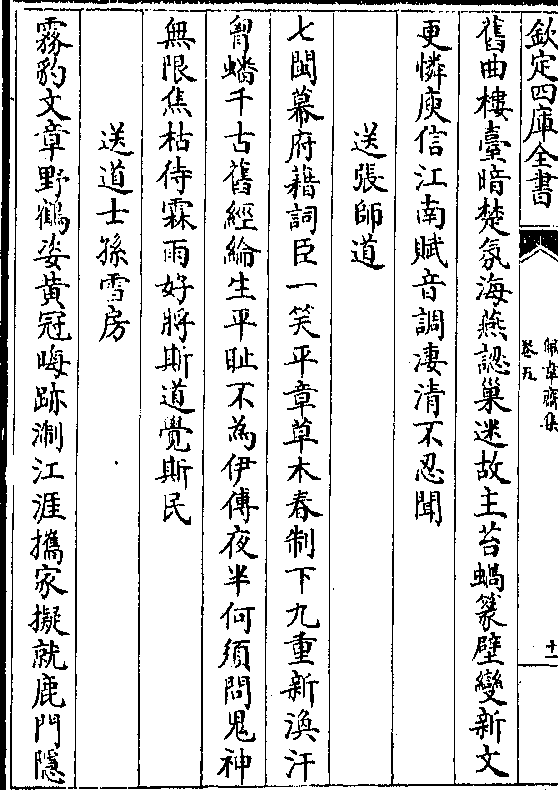 欽定四庫全書
佩韋齋集
卷五
十一
舊曲樓臺暗楚氛海燕認巢迷故主苔蝸篆壁變新文
更憐庾信江南賦音調凄清不忍聞
送張師道
七閩幕府藉詞臣一笑平章草木春制下九重新渙汗
胷蟠千古舊經綸生平恥不為伊傅夜半何須問鬼神
無限焦枯待霖雨好將斯道覺斯民
送道士孫雪房
霧豹文章野鶴姿黃冠晦跡淛江涯攜家擬就鹿門隱